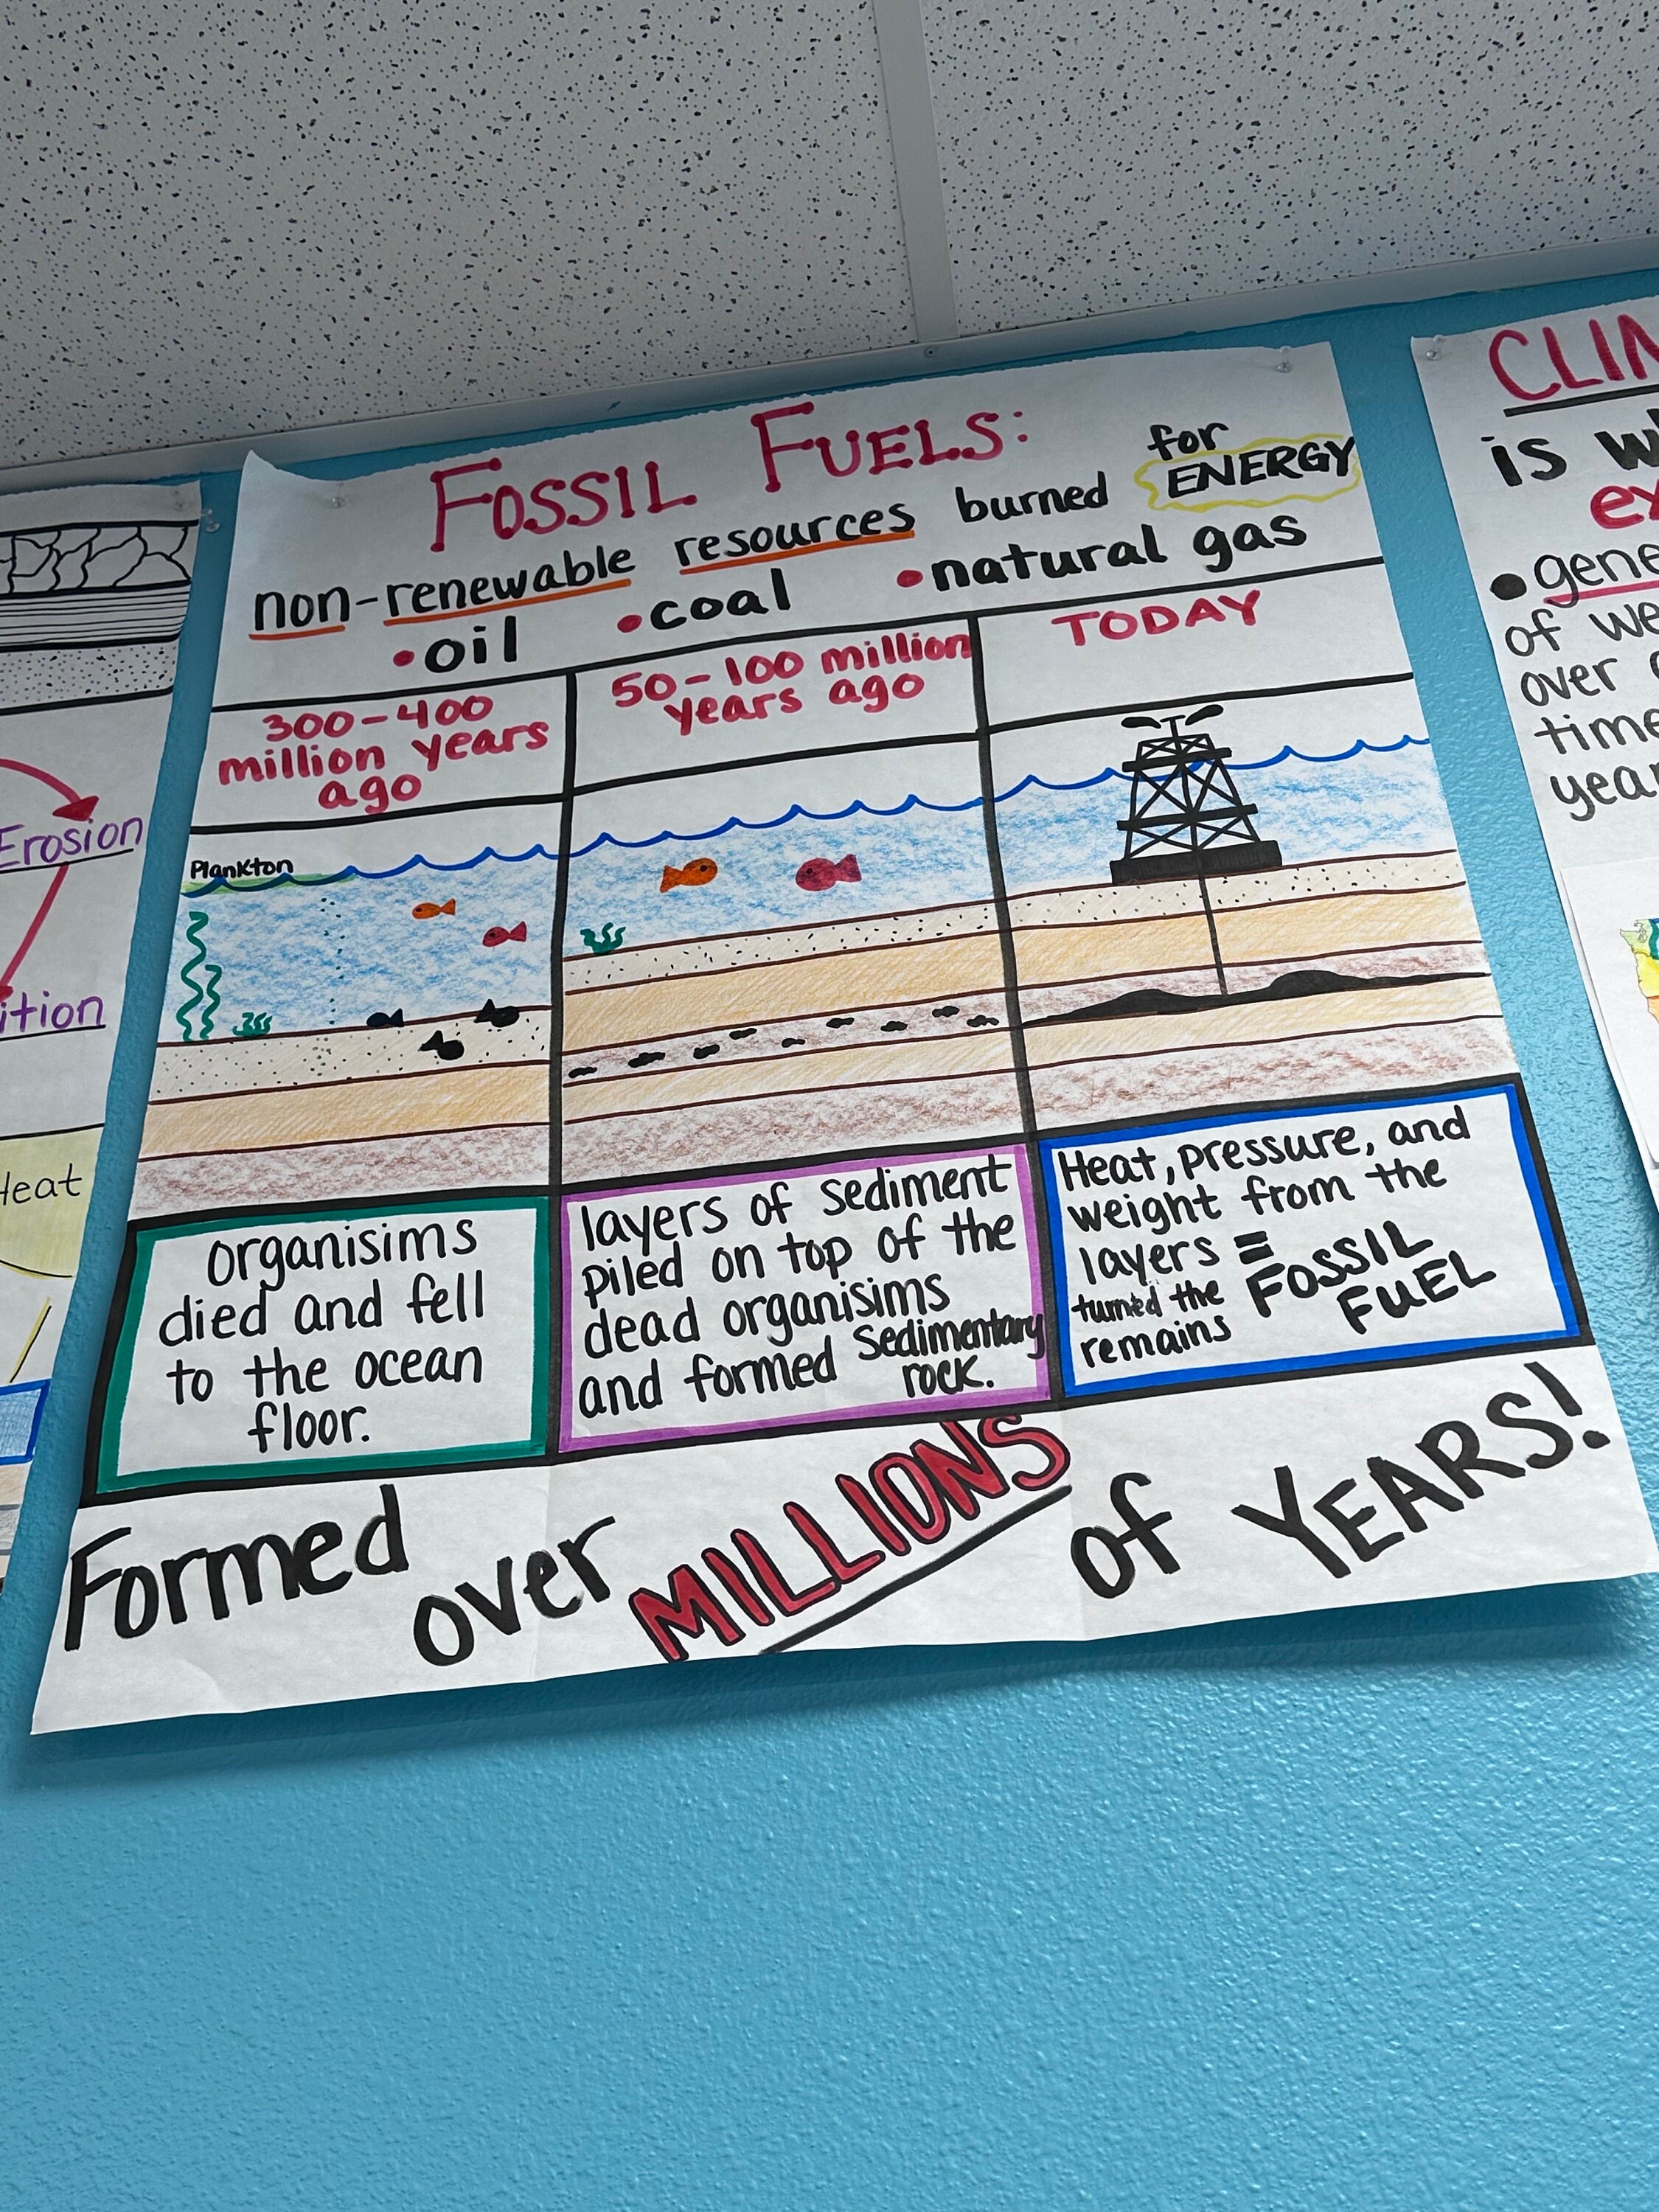 FOSSIL FUELS:
non-renewable resources burned for ENERGY
• oil • coal • natural gas
300-400
million years
ago
50-100 million
years ago
TODAY
Plankton
organisims
died and fell
to the ocean
floor.
layers of sediment
piled on top of the
dead organisims
and formed Sedimentary
rock.
Heat, pressure, and
weight from the
layers =
turned the
remains
FOSSIL
FUEL
Formed over MILLIONS of YEARS!
Erosion
ition
Heat
CLIM
is w
ex
• gene
of we
over
time
year